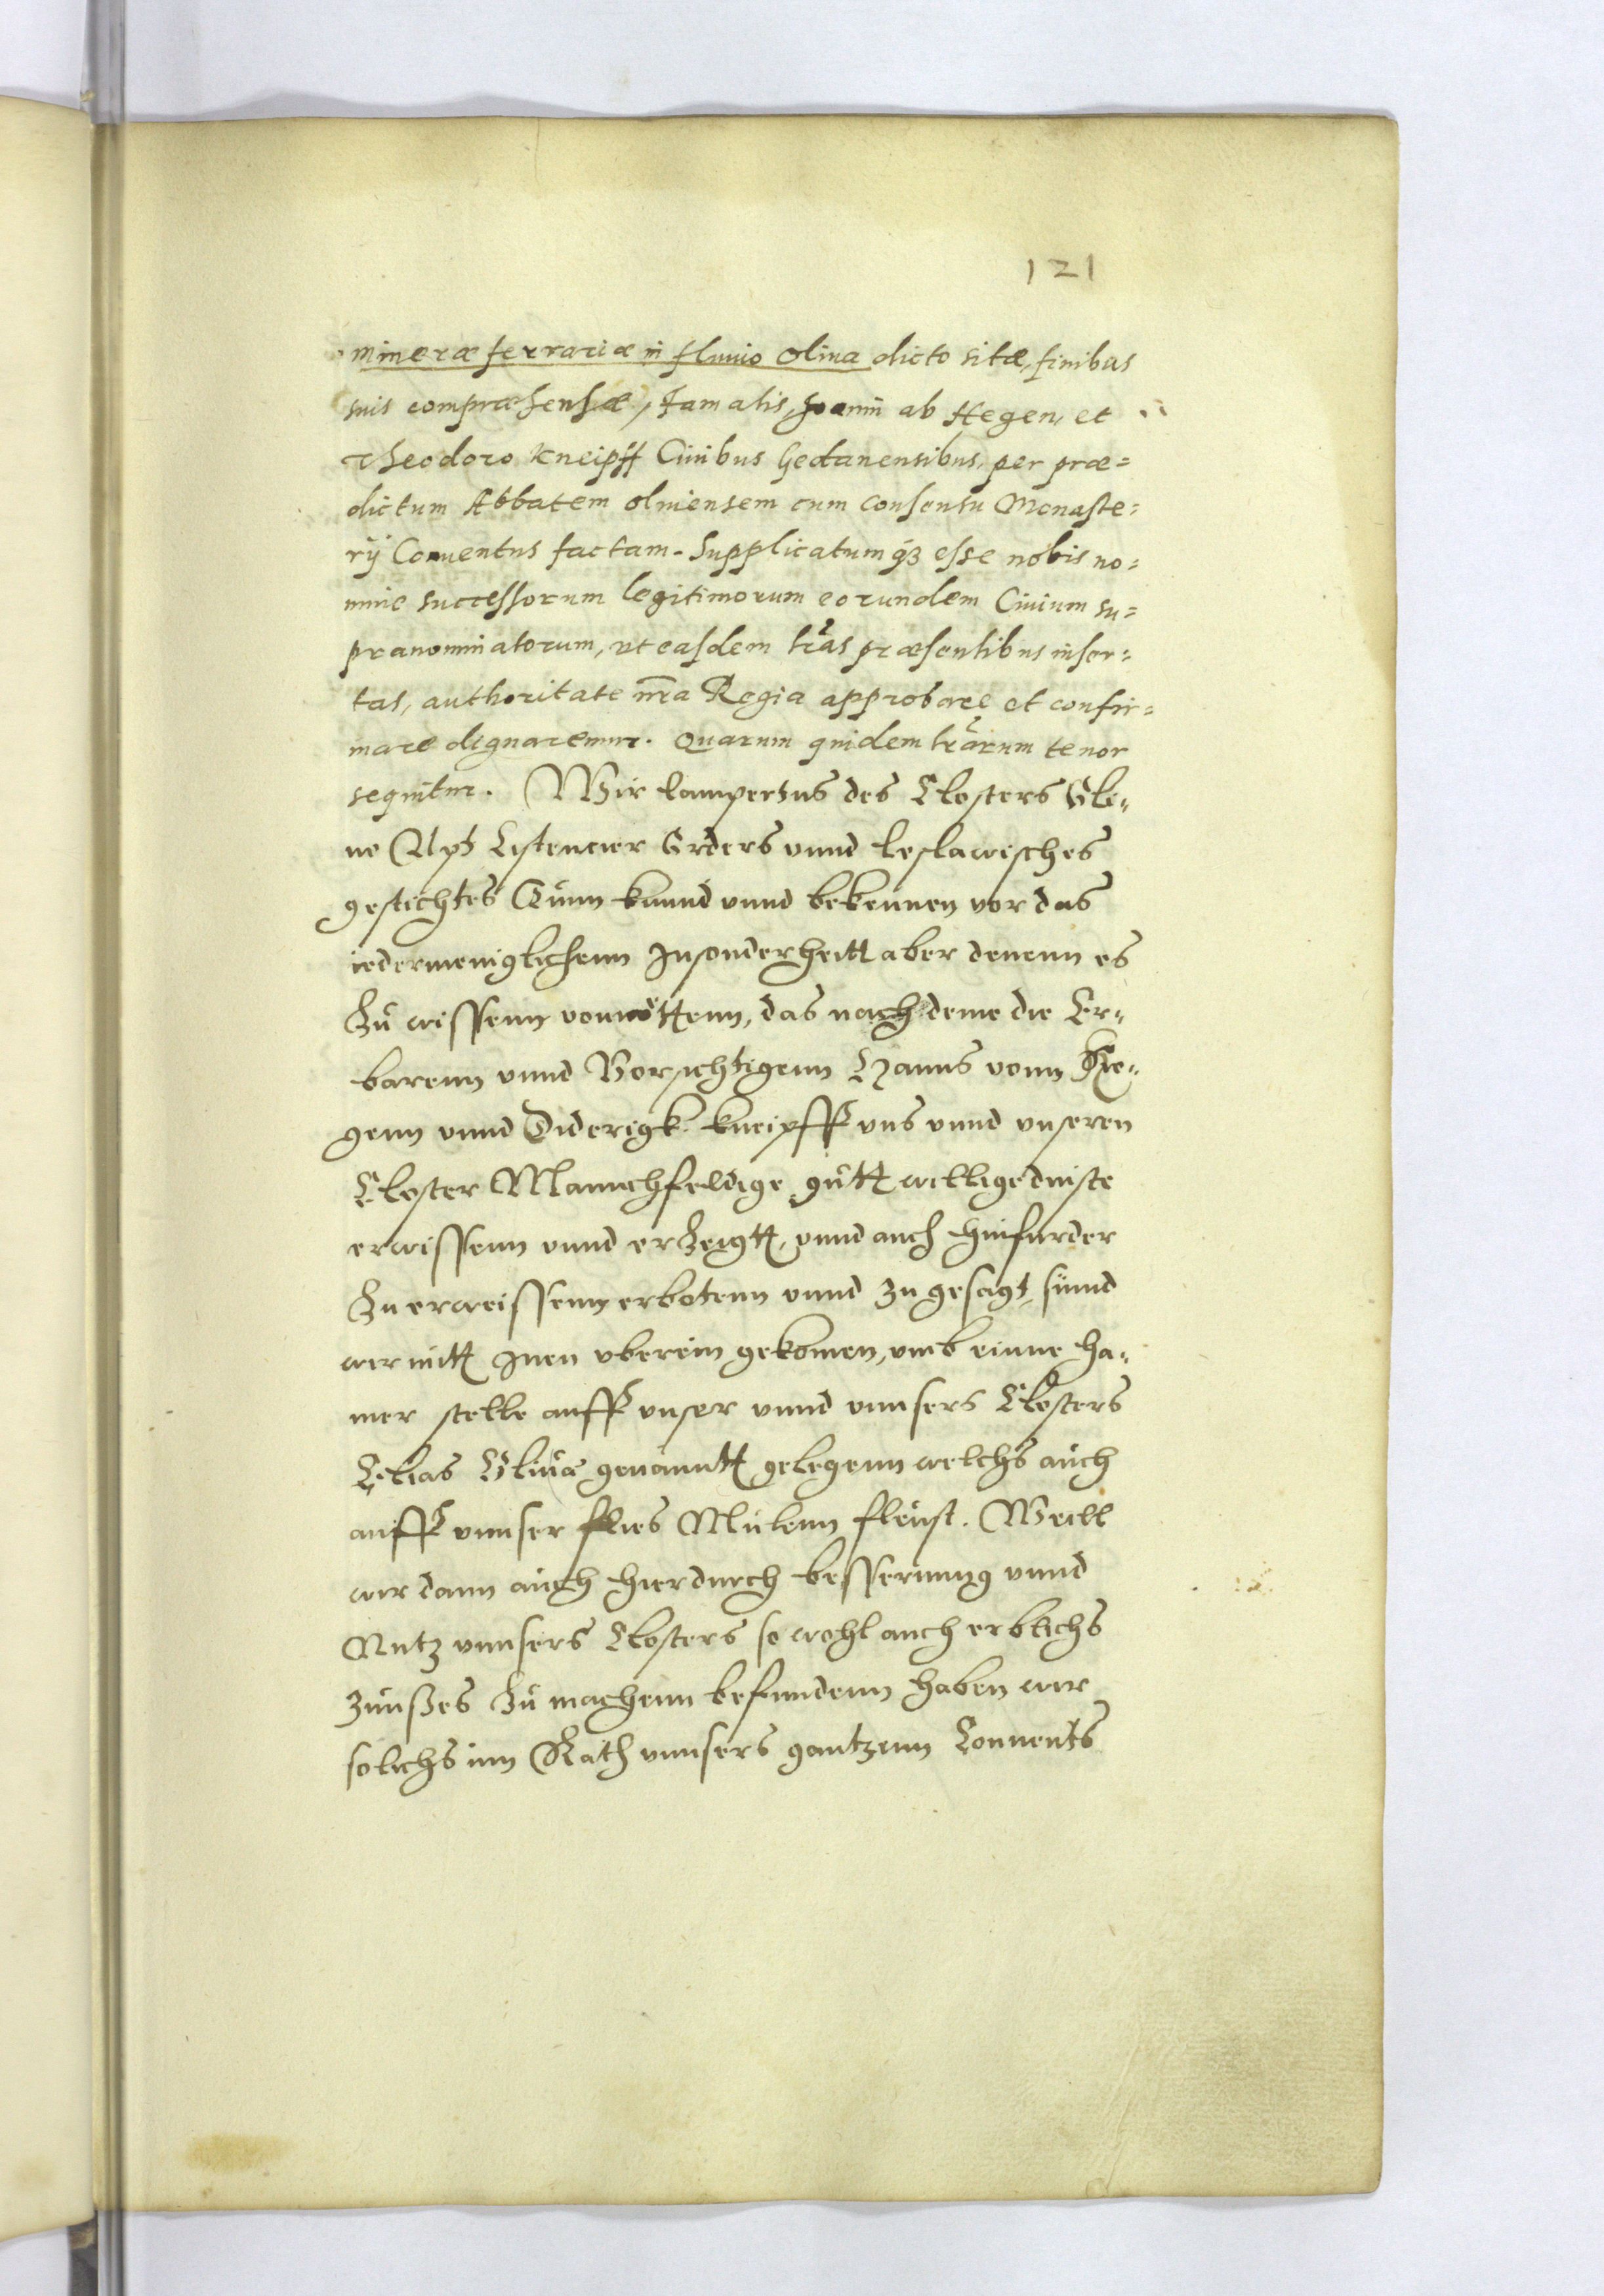 121
mineræ ferrariæ in fluuio Oliua dicto sitæ, finibus
suis compræhensæ, famatis, Joanni ab Hegen, et
Theodoro Kneipff Ciuibus Gedanensibus, per præ=
dictum Abbatem oliuensem cum consensu Monaste=
rÿ Conuentus factam. Supplicatumq3 esse nobis no=
mine successorum legitimorum eorundem Ciuium su=
pranominatorum, vt easdem lras præsentibus inser=
tas, authoritate nra Regia approbare et confir=
mare dignaremur. Quarum quidem lrarum tenor
sequitur. Wir Lampertus des Closters Oli=
ue Apt Cistencier Orders vnnd Leslawisches
gestichtes Thunn kunnd vnnd bekennen vor das
iedermeniglichenn Insonderheitt aber denenn es
Zu wissenn vonnöttenn, das nach deme die Er=
barenn vnnd Vorsichtigenn Hanns vonn He=
genn vnnd Diderigk Kneipff vns vnnd vnseren
Closter Mannichfeldige gutt willigedniste
erwissenn vnnd erZeigtt, vnnd auch hinfurder
Zu erweissenn erbotenn vnnd zu gesagt, sinnd
wir mitt Inen vberein gekomen, vmb einne ha=
mer stelle auff vnser vnnd vnnsers Closters
Oliua genanntt gelegenn welchs auch
auff vnnser flies Mulenn fleust. Weill
wir dann auch hierdurch besserunng vnnd
Nutz vnnsers Closters so wohl auch erblichs
Zinnßes Zu machenn befundenn haben wir
solichs inn Rath vnnsers gantzenn Conuents